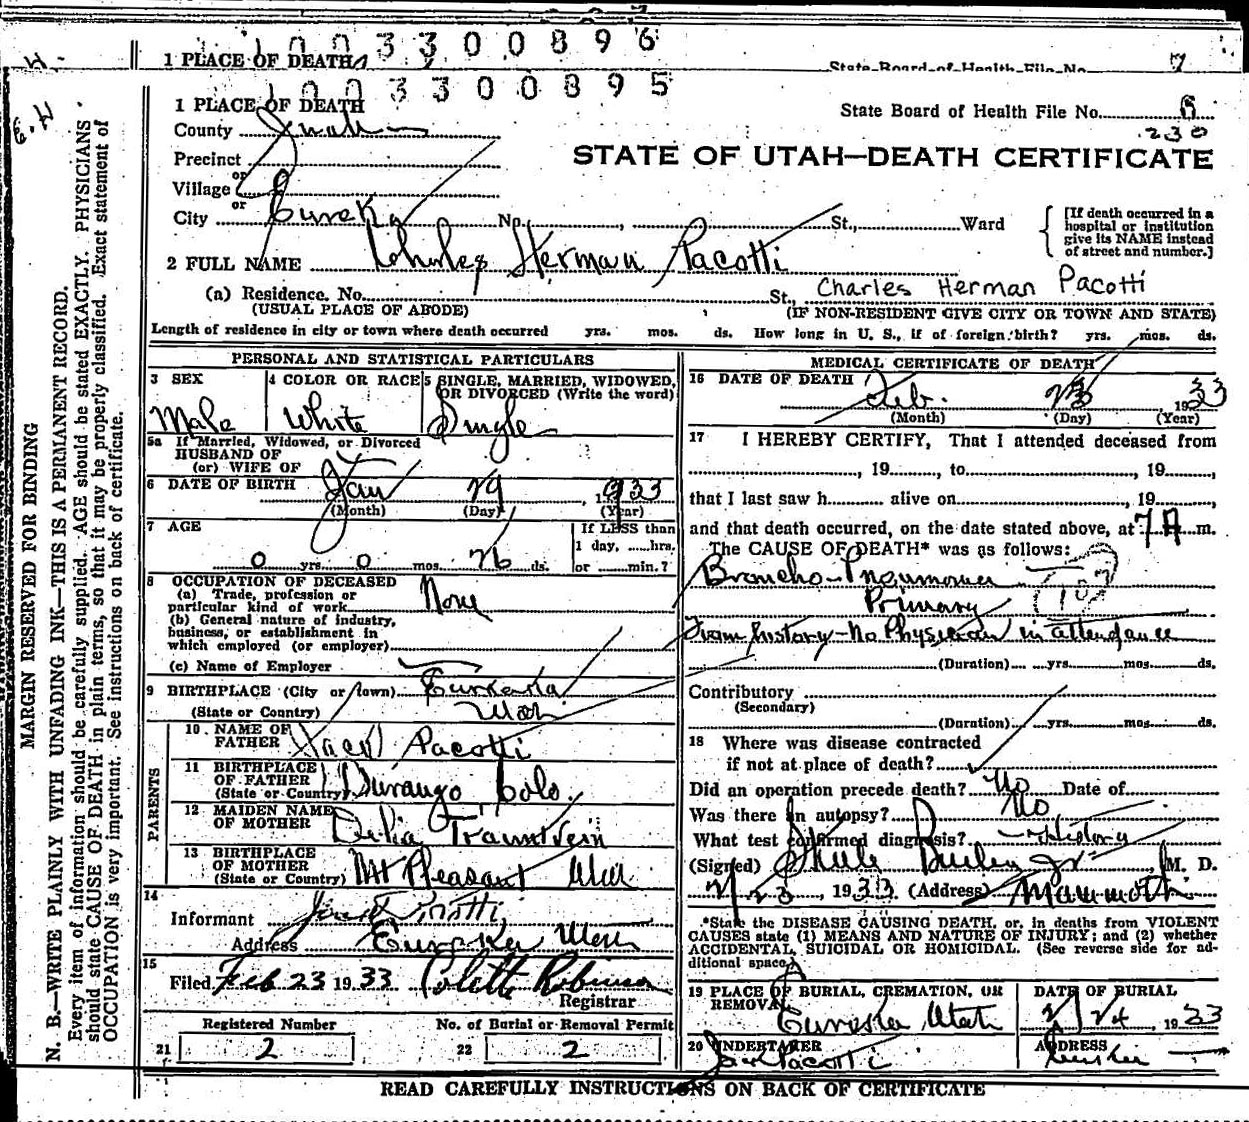 1003300896
1 PLACE OF DEATH
State Board of Health File No. 7
1003300895
1 PLACE OF DEATH
State Board of Health File No. 8
County Juab
230
STATE OF UTAH—DEATH CERTIFICATE
Precinct
or
Village
or
City Eureka No. , St., Ward
[If death occurred in a hospital or institution give its NAME instead of street and number.]
2 FULL NAME Charles Herman Pacotti
(a) Residence. No. St., Charles Herman Pacotti
(USUAL PLACE OF ABODE) (IF NON-RESIDENT GIVE CITY OR TOWN AND STATE)
Length of residence in city or town where death occurred yrs. mos. ds. How long in U. S., if of foreign birth? yrs. mos. ds.
PERSONAL AND STATISTICAL PARTICULARS
3 SEX
Male
4 COLOR OR RACE
White
5 SINGLE, MARRIED, WIDOWED,
OR DIVORCED (Write the word)
Single
5a If Married, Widowed, or Divorced
HUSBAND OF
(or) WIFE OF
6 DATE OF BIRTH Jan 29, 1933
(Month) (Day) (Year)
7 AGE
0 yrs. 0 mos. 26 ds.
If LESS than
1 day, ......hrs.
or ......min.?
8 OCCUPATION OF DECEASED
(a) Trade, profession or
particular kind of work None
(b) General nature of industry,
business, or establishment in
which employed (or employer)
(c) Name of Employer
9 BIRTHPLACE (City or town) Eureka
(State or Country) Utah
PARENTS
10 NAME OF
FATHER Jack Pacotti
11 BIRTHPLACE
OF FATHER
(State or Country) Durango, Colo.
12 MAIDEN NAME
OF MOTHER Delia Trauntvein
13 BIRTHPLACE
OF MOTHER
(State or Country) Mt Pleasant Utah
14
Informant Jack Pacotti
Address Eureka Utah
15
Filed Feb 23 1933. Colette Robinson
Registrar
Registered Number
21 2
No. of Burial or Removal Permit
22 2
MEDICAL CERTIFICATE OF DEATH
16 DATE OF DEATH
Feb. 23 1933
(Month) (Day) (Year)
17 I HEREBY CERTIFY, That I attended deceased from
, 19 , to , 19 ,
that I last saw h alive on , 19
and that death occurred, on the date stated above, at 7 A m.
The CAUSE OF DEATH* was as follows:
Broncho-Pneumonia
Primary 107
From history—No Physician in attendance
(Duration) yrs. mos. ds.
Contributory
(Secondary)
(Duration) yrs. mos. ds.
18 Where was disease contracted
if not at place of death?
Did an operation precede death? No Date of
Was there an autopsy? No
What test confirmed diagnosis? History
(Signed) Steele Bailey Jr M. D.
2/23, 1933 (Address) Mammoth
*State the DISEASE CAUSING DEATH, or, in deaths from VIOLENT
CAUSES state (1) MEANS AND NATURE OF INJURY; and (2) whether
ACCIDENTAL, SUICIDAL OR HOMICIDAL. (See reverse side for ad-
ditional space)
19 PLACE OF BURIAL, CREMATION, OR
REMOVAL
Eureka, Utah
DATE OF BURIAL
2/24, 1933
20 UNDERTAKER
Jack Pacotti
ADDRESS
Eureka
READ CAREFULLY INSTRUCTIONS ON BACK OF CERTIFICATE
MARGIN RESERVED FOR BINDING
N. B.—WRITE PLAINLY WITH UNFADING INK—THIS IS A PERMANENT RECORD.
Every item of information should be carefully supplied. AGE should be stated EXACTLY. PHYSICIANS
should state CAUSE OF DEATH in plain terms, so that it may be properly classified. Exact statement of
OCCUPATION is very important. See instructions on back of certificate.